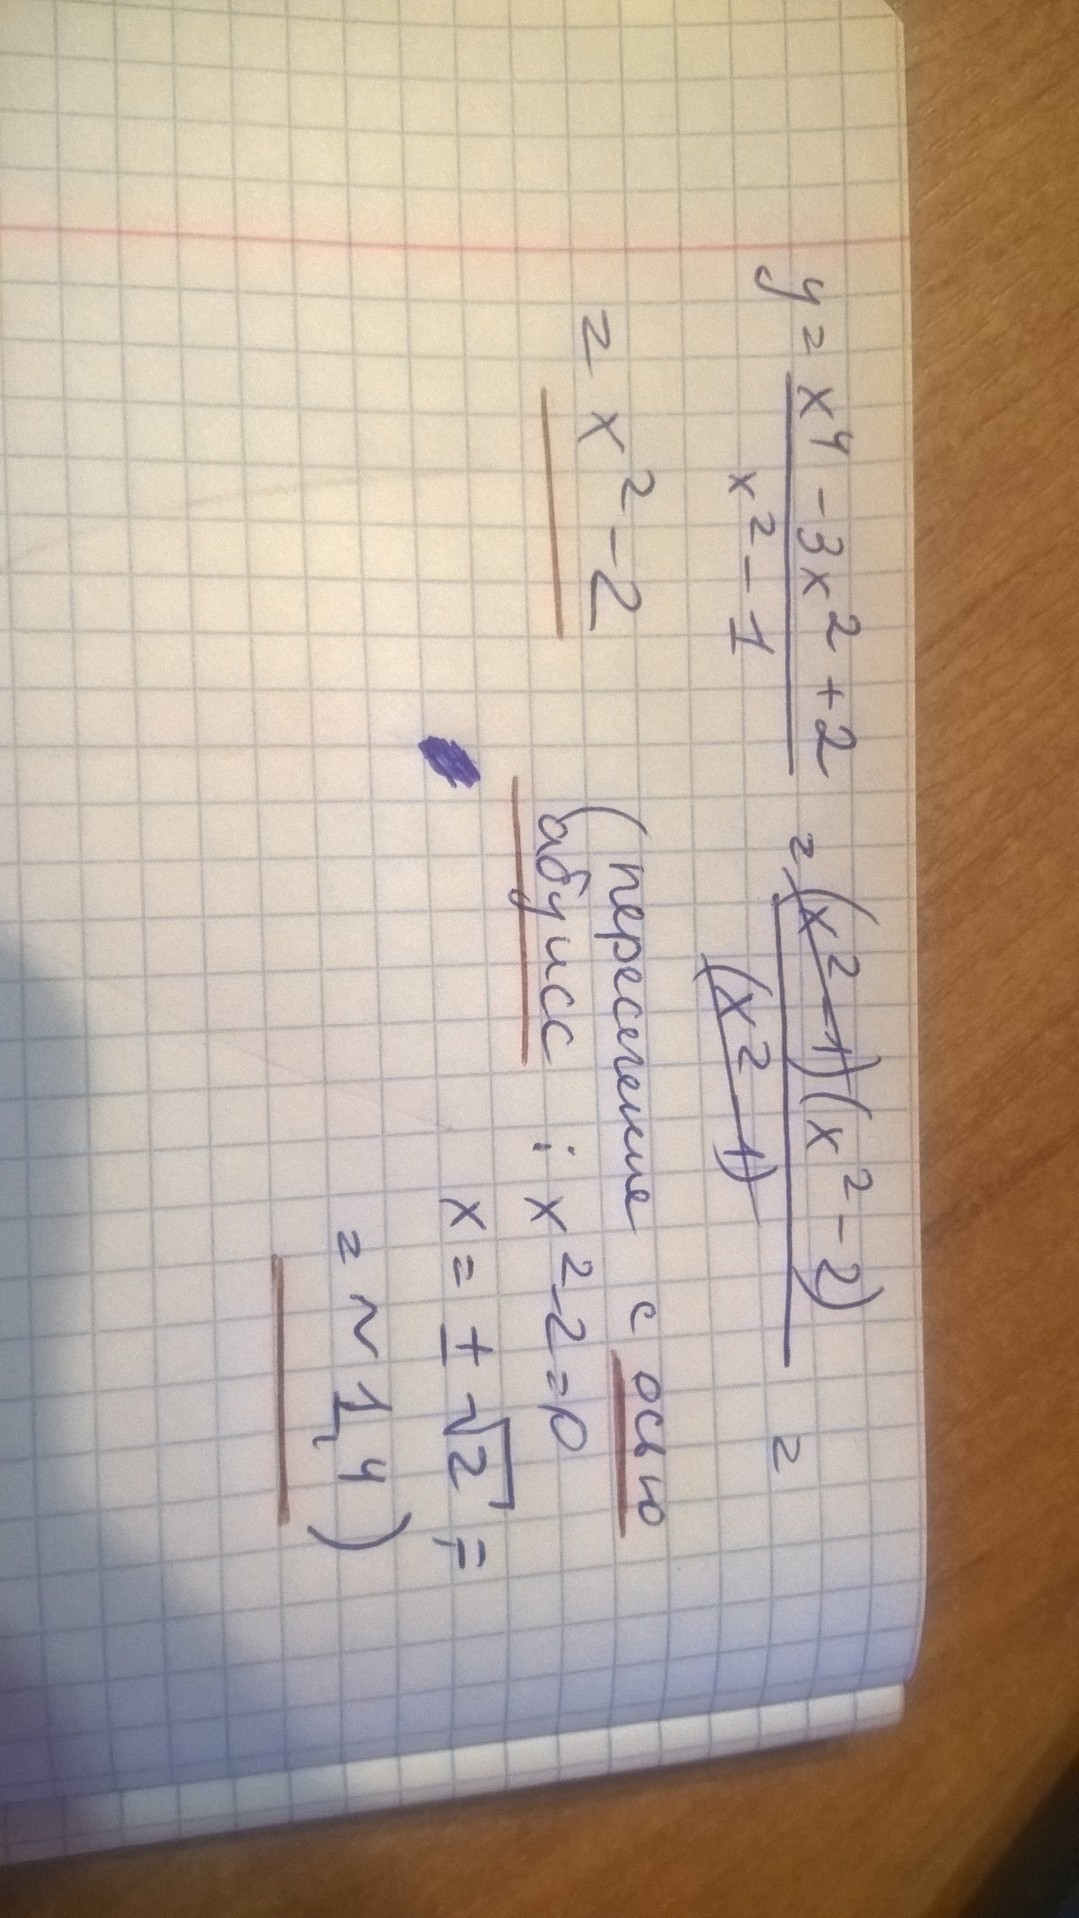 y = x⁴ - 3x² + 2 / x² - 1 = (x² - 1)(x² - 2) / (x² - 1) =
= x² - 2
(пересечение с осью
абцисс : x² - 2 = 0
x = ± √2 =
= ~ 1,4)